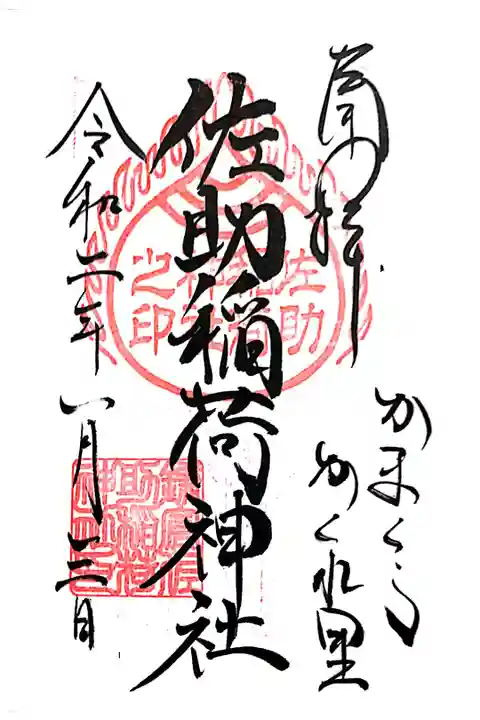 奉拝
かまくら
かくれ里
佐助稲荷神社
令和二年八月
佐助稲荷神社之印